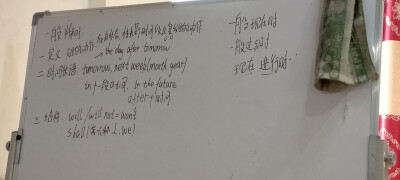 一般将来时
一. 定义
the day after tomorrow
二. 时间状语: tomorrow, next week(month year)
in+一段时间. in the future
after+时间.
三. 结构 will/will not=won't
shall(第一人称 I. we)
一般现在时
一般过去时
现在进行时